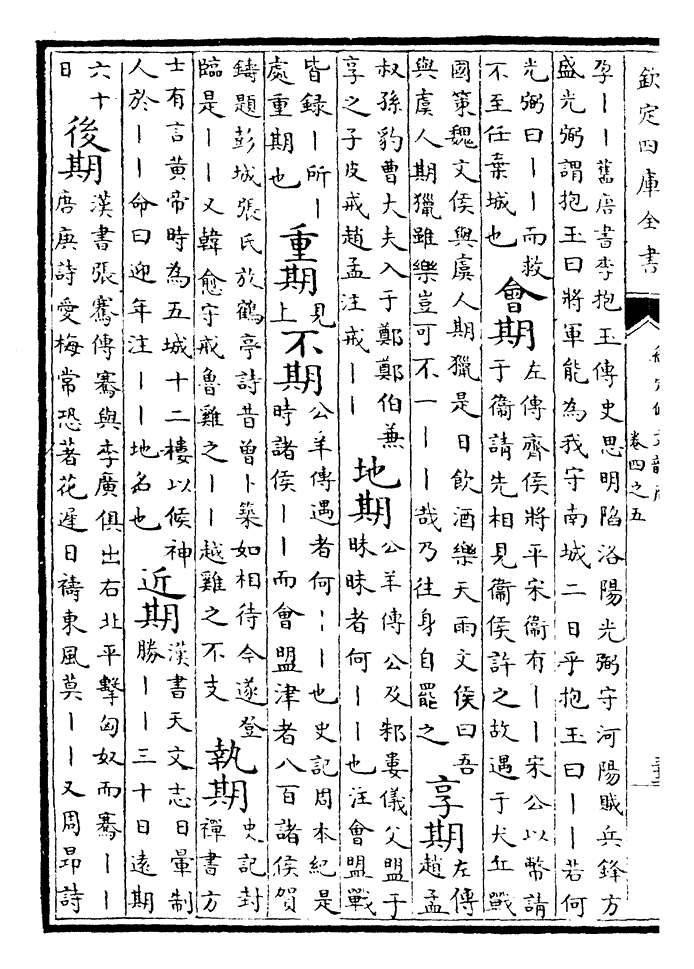 欽定四庫全書
卷四之五
孕丨丨舊唐書李抱玉傳史思明陷洛陽光弼守河陽賊兵鋒方
盛光弼謂抱玉曰將軍能為我守南城二日乎抱玉曰丨丨若何
光弼曰丨丨而救
不至任棄城也
會期
左傳齊侯將平宋衛有丨丨宋公以幣請
于衛請先相見衛侯許之故遇于犬丘戰
國策魏文侯與虞人期獵是日飲酒樂天雨文侯曰吾
與虞人期獵雖樂豈可不一丨丨哉乃往身自罷之
享期
左傳
趙孟
叔孫豹曹大夫入于鄭鄭伯兼
享之子皮戒趙孟注戒丨丨
地期
公羊傳公及邾婁儀父盟于
眛眛者何丨丨也注會盟戰
皆録丨所丨
處重期也
重期
見
上
不期
公羊傳遇者何丨丨也史記周本紀是
時諸侯丨丨而會盟津者八百諸侯賀
鑄題彭城張氏放鶴亭詩昔曾卜築如相待今遂登
臨是丨丨又韓愈守戒魯雞之丨丨越雞之不支
執期
史記封
禪書方
士有言黃帝時為五城十二樓以候神
人於丨丨命曰迎年注丨丨地名也
近期
漢書天文志日暈制
勝丨丨三十日遠期
六十
日
後期
漢書張騫傳騫與李廣俱出右北平擊匈奴而騫丨丨
唐庚詩愛梅常恐著花遲日禱東風莫丨丨又周昂詩